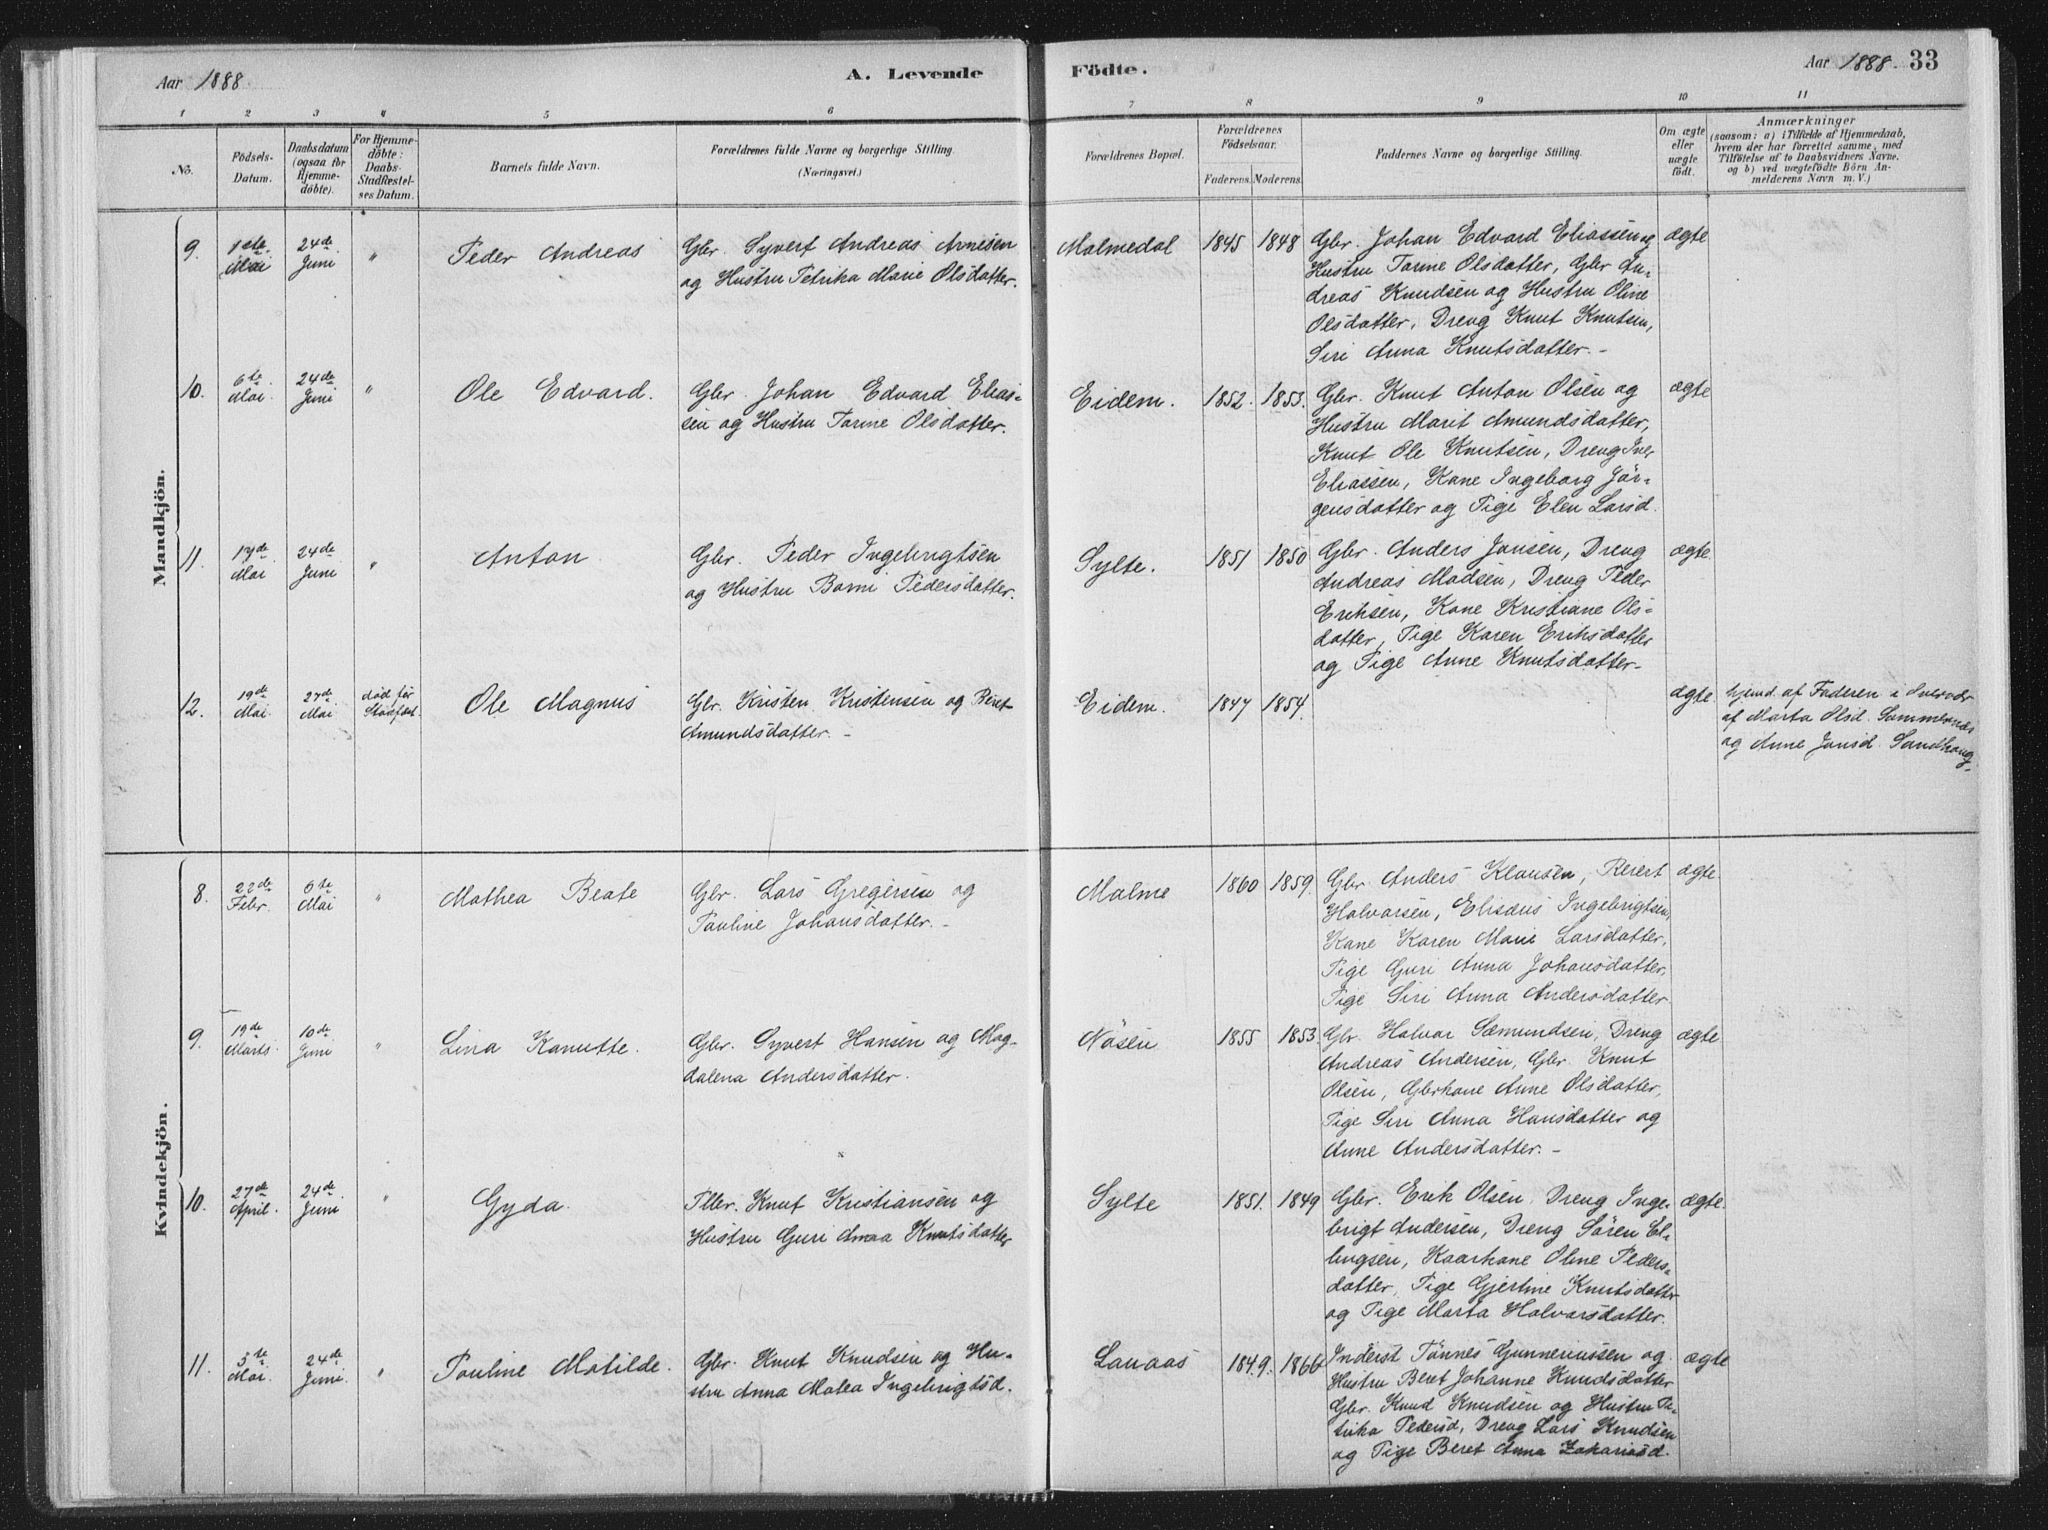 Aar 1888
A. Levende
Födte.
Aar 1888. 33
1 2 3 4 5 6 7 8 9 10 11
No.
Födsels-
Datum.
Daabsdatum
(ogsaa for
Hjemme-
döbte).
For Hjemme-
döbte:
Daabs-
Stadfæstel-
ses Datum.
Barnets fulde Navn.
Forældrenes fulde Navne og borgerlige Stilling.
(Næringsvei.)
Forældrenes Bopæl.
Forældrenes
Födselsaar.
Faderens. Moderens.
Faddernes Navne og borgerlige Stilling.
Om ægte
eller
uægte
födt.
Anmærkninger
(saasom: a) i Tilfælde af Hjemmedaab,
hvem der har forrettet samme, med
Tilföielse af to Daabsvidners Navne.
og b) ved uægtefödte Börn An-
melderens Navn m. V.)
Mandkjön.
9.
1ste
Mai
24de
Juni
"
Peder Andreas
Gbr. Syvert Andreas Arnesen
og Hustru Petrika Marie Olsdatter.
Malmedal
1845
1848
Gbr. Johan Edvard Eliassen og
Hustru Tarine Olsdatter, Gbr. An-
dreas Knudsen og Hustru Oline
Olsdatter, Dreng Knut Knutsen,
Siri Anna Knutsdatter. -
ægte
10.
6te
Mai.
24de
Juni
"
Ole Edvard.
Gbr. Johan Edvard Elias-
sen og Hustru Tarine Olsdatter.
Eidem.
1852.
1853.
Gbr. Knut Anton Olsen og
Hustru Marit Amundsdatter,
Knut Ole Knutsen, Dreng Iver
Eliassen, Kone Ingeborg Jör-
gensdatter og Pige Elen Larsd.
ægte
11.
17de
Mai
24de
Juni
"
Anton
Gbr. Peder Ingebrigtsen
og Hustru Barni Pedersdatter.
Sylte.
1851
1850
Gbr. Anders Jansen, Dreng
Andreas Madsen, Dreng Peder
Eriksen, Kone Kristiane Ols-
datter, Pige Karen Eriksdatter
og Pige Anne Knutsdatter-
ægte.
12.
19de
Mai
27de
Mai
död för
Stadfæst.
Ole Magnus
Gbr. Kristen Kristensen og Beret
Amundsdatter. -
Eidem.
1847
1854.
ægte.
hjemd. af Faderen i Overvær
af Marta Olsd. Sommernæs
og Anne Jansd. Sandhaug.
Kvindekjön.
8.
22de
Febr.
6te
Mai
"
Mathea Beate
Gbr. Lars Gregersen og
Pauline Johansdatter. -
Malme
1860
1859.
Gbr. Anders Klausen, Reiert
Halvarsen, Elisæus Ingebrigtsen,
Kone Karen Marie Larsdatter,
Pige Guri Anna Johansdatter,
Pige Siri Anna Andersdatter
ægte.
9.
19de
Marts.
10de
Juni
"
Lina Kanutte.
Gbr. Syvert Hansen og Mag-
dalena Andersdatter.
Nösen
1855
1853.
Gbr. Halvar Sæmundsen, Dreng
Andreas Andersen, Gbr. Knut
Olsen, Gbrkone Anne Olsdatter,
Pige Siri Anna Hansdatter og
Anne Andersdatter. -
ægte.
10.
27de
April.
24de
Juni
"
Gyda.
Pller. Knut Kristiansen og
Hustru Guri Anna Knutsdatter
Sylte
1851.
1849
Gbr. Erik Olsen, Dreng Inge-
brigt Andersen, Dreng Sören El-
lingsen, Kaarkone Oline Peders-
datter, Pige Gjertine Knutsdatter
og Pige Marta Halvarsdatter.
ægte.
11.
5te
Mai.
24de
Juni.
"
Pauline Matilde.
Gbr. Knut Knudsen og Hu-
stru Anna Matea Ingebrigtsd.
Lanaas
1849.
1866
Inderst Tönnes Gunneriussen og
Hustru Beret Johanne Knudsdatter
Gbr. Knud Knudsen og Hustru Pe-
trika Pedersd, Dreng Lars Knudsen
og Pige Beret Anna Zakariasd.
ægte